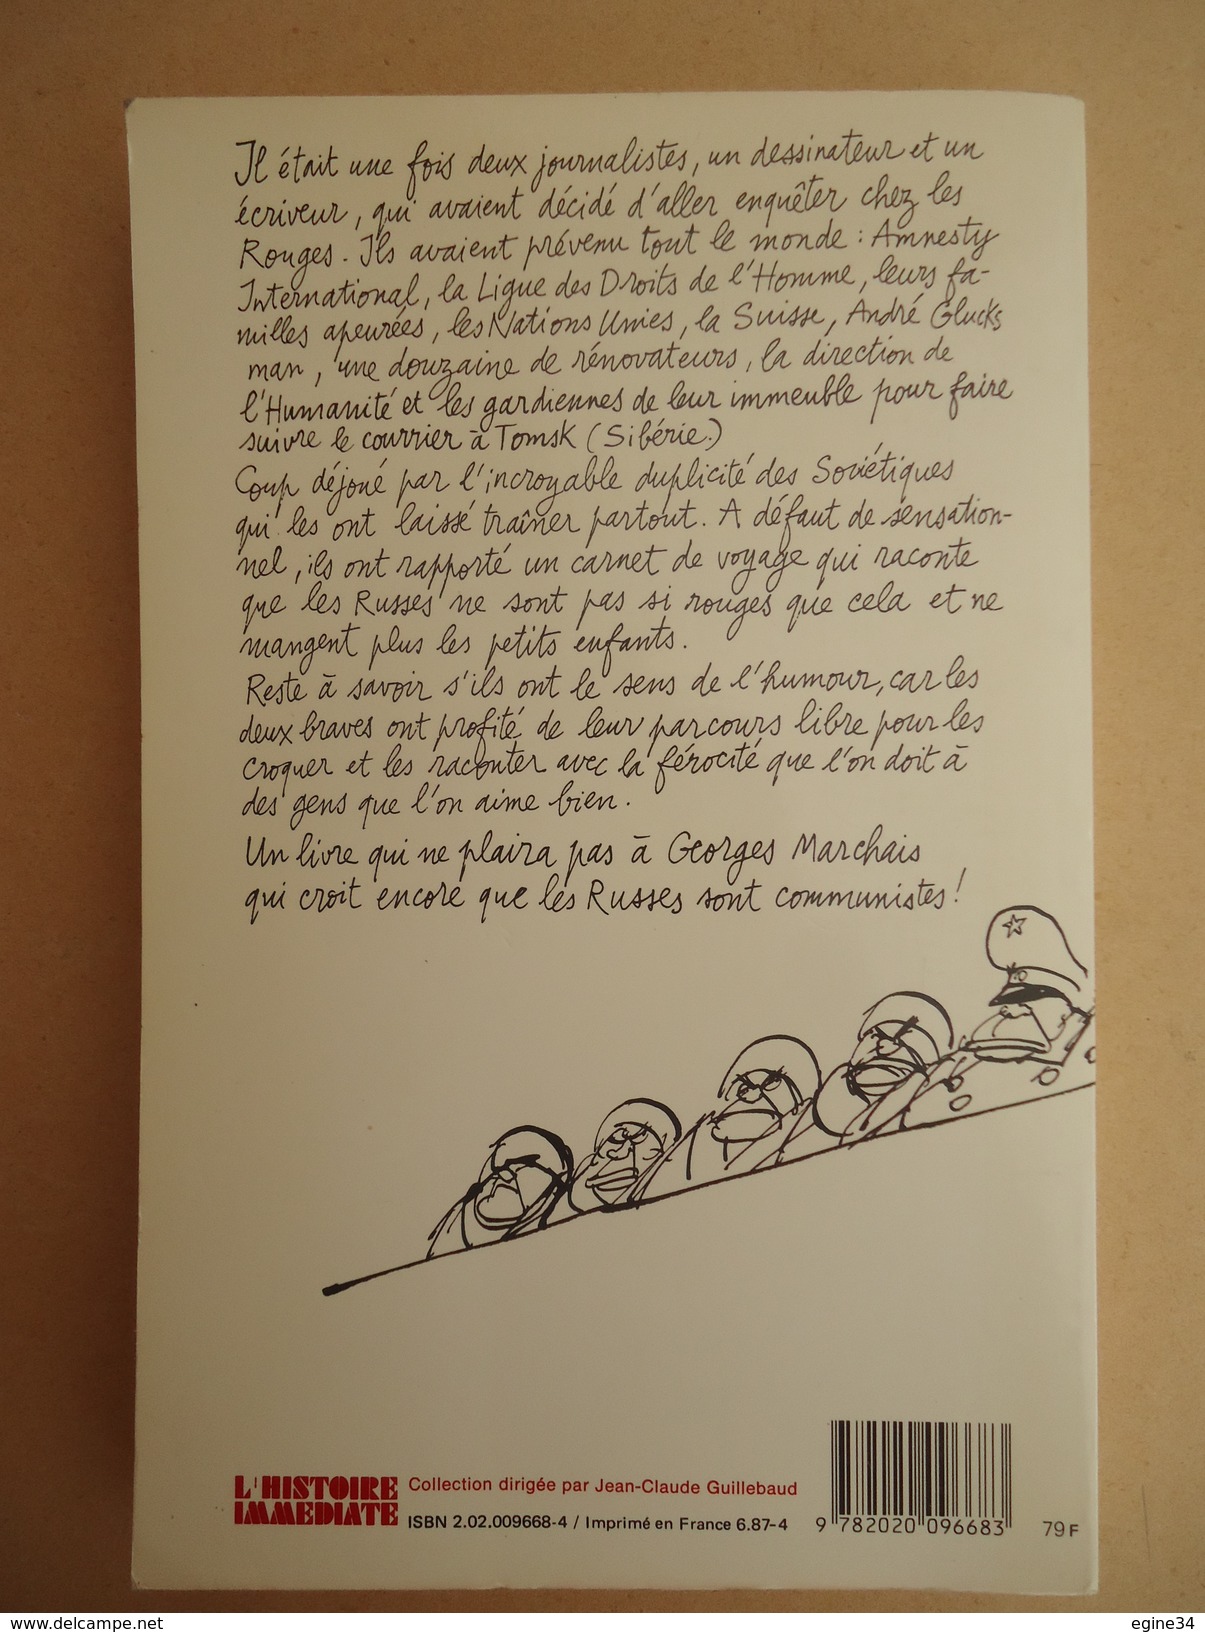 Il était une fois deux journalistes, un dessinateur et un
écriveur, qui avaient décidé d'aller enquêter chez les
Rouges. Ils avaient prévenu tout le monde : Amnesty
International, la Ligue des Droits de l'Homme, leurs fa-
milles apeurées, les Nations Unies, la Suisse, André Glucks
man, une douzaine de rénovateurs, la direction de
l'Humanité et les gardiennes de leur immeuble pour faire
suivre le courrier à Tomsk (Sibérie.)
Coup déjoué par l'incroyable duplicité des Soviétiques
qui les ont laissé traîner partout. A défaut de sensation-
nel, ils ont rapporté un carnet de voyage qui raconte
que les Russes ne sont pas si rouges que cela et ne
mangent plus les petits enfants.
Reste à savoir s'ils ont le sens de l'humour, car les
deux braves ont profité de leur parcours libre pour les
croquer et les raconter avec la férocité que l'on doit à
des gens que l'on aime bien.
Un livre qui ne plaira pas à Georges Marchais
qui croit encore que les Russes sont communistes !
L'HISTOIRE
IMMEDIATE
Collection dirigée par Jean-Claude Guillebaud
ISBN 2.02.009668-4 / Imprimé en France 6.87-4
9 782020 096683
79 F
www.delcampe.net
egine34